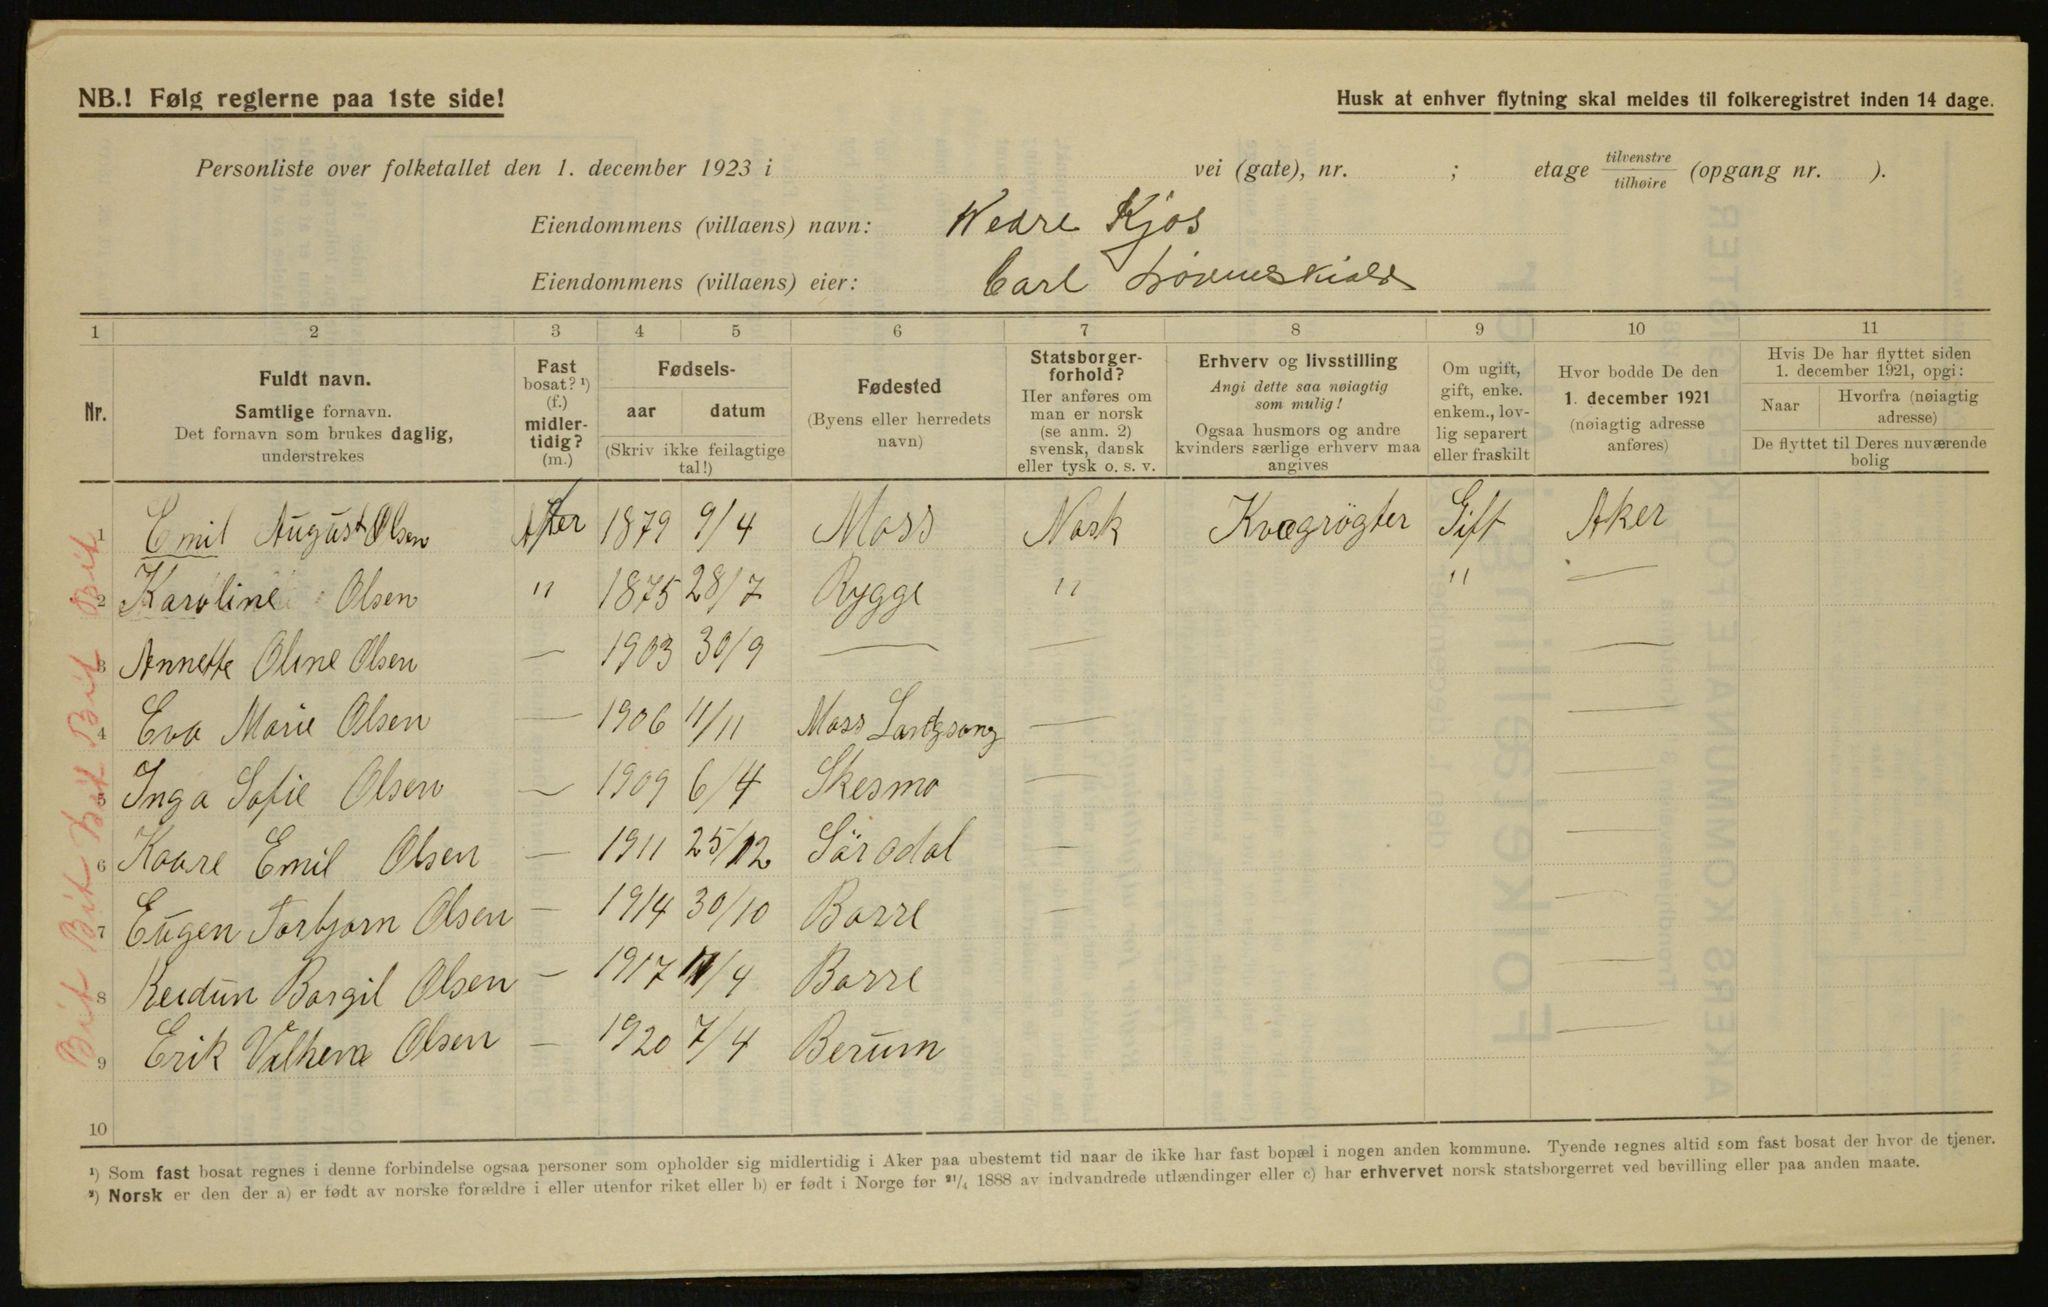 NB.! Følg reglerne paa 1ste side!
Husk at enhver flytning skal meldes til folkeregistret inden 14 dage.
Personliste over folketallet den 1. december 1923 i vei (gate), nr. ; etage tilvenstre / tilhøire (opgang nr. ).
Eiendommens (villaens) navn: Nedre Kjos
Eiendommens (villaens) eier: Carl Løvenskiold
1 2 3 4 5 6 7 8 9 10 11
Nr.
Fuldt navn.
Samtlige fornavn.
Det fornavn som brukes daglig,
understrekes
Fast
bosat? ¹)
(f.)
midler-
tidig?
(m.)
Fødsels-
aar datum
(Skriv ikke feilagtige
tal!)
Fødested
(Byens eller herredets
navn)
Statsborger-
forhold?
Her anføres om
man er norsk
(se anm. 2)
svensk, dansk
eller tysk o. s. v.
Erhverv og livsstilling
Angi dette saa nøiagtig
som mulig!
Ogsaa husmors og andre
kvinders særlige erhverv maa
angives
Om ugift,
gift, enke.
enkem., lov-
lig separert
eller fraskilt
Hvor bodde De den
1. december 1921
(nøiagtig adresse
anføres)
Hvis De har flyttet siden
1. december 1921, opgi:
Naar Hvorfra (nøiagtig
adresse)
De flyttet til Deres nuværende
bolig
1 Emil August Olsen Aker 1879 9/4 Moss Nosk Kvægrøgter Gift Aker
2 Karoline Olsen " 1875 28/7 Rygge " " —
3 Annette Oline Olsen — 1903 30/9 — — —
4 Eva Marie Olsen — 1906 11/11 Moss Landsong — —
5 Inga Sofie Olsen — 1909 6/4 Skesmo — —
6 Kaare Emil Olsen — 1911 25/12 Sörodal — —
7 Eugen Torbjorn Olsen — 1914 30/10 Borre — —
8 Reidun Borgil Olsen — 1917 11/4 Borre —
9 Erik Vilhem Olsen — 1920 7/4 Berum —
10
Bit Bit Bit Bit Bit Bit
¹) Som fast bosat regnes i denne forbindelse ogsaa personer som opholder sig midlertidig i Aker paa ubestemt tid naar de ikke har fast bopæl i nogen anden kommune. Tyende regnes altid som fast bosat der hvor de tjener.
²) Norsk er den der a) er født av norske forældre i eller utenfor riket eller b) er født i Norge før ²¹/₄ 1888 av indvandrede utlændinger eller c) har erhvervet norsk statsborgerret ved bevilling eller paa anden maate.